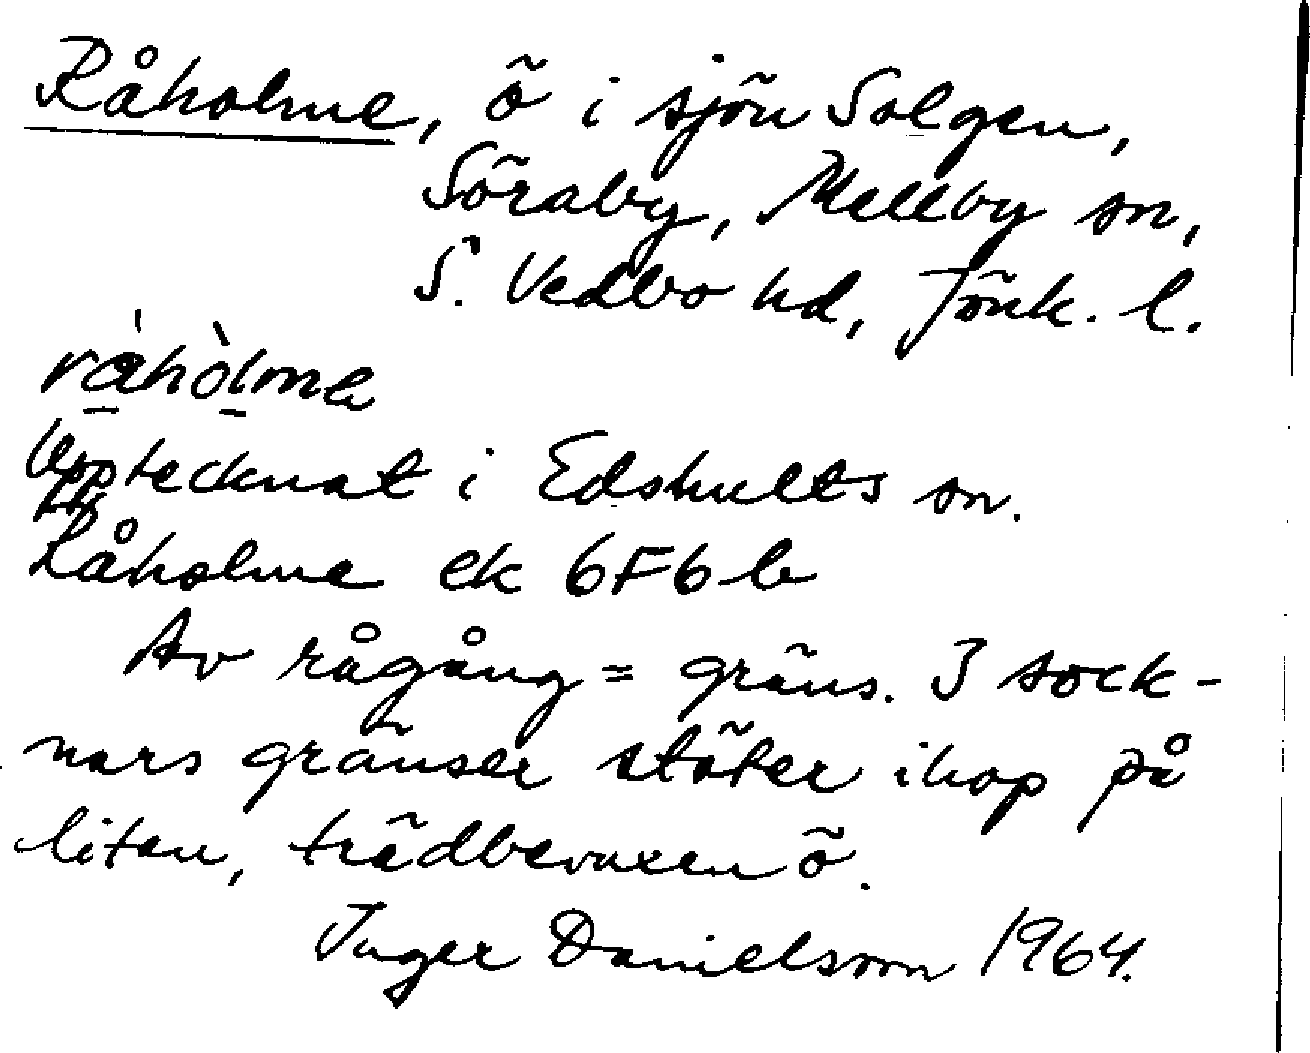 Råholme, ö i sjön Solgen,
Söraby, Mellby sn,
S. Vedbo hd, Jönk. l.
råhòlme
Upptecknat i Edshults sn.
Råholme ek 6F6b
Av rågång = gräns. 3 sock-
nars gränser stöter ihop på
liten, trädbevuxen ö.
Inger Danielsson 1964.